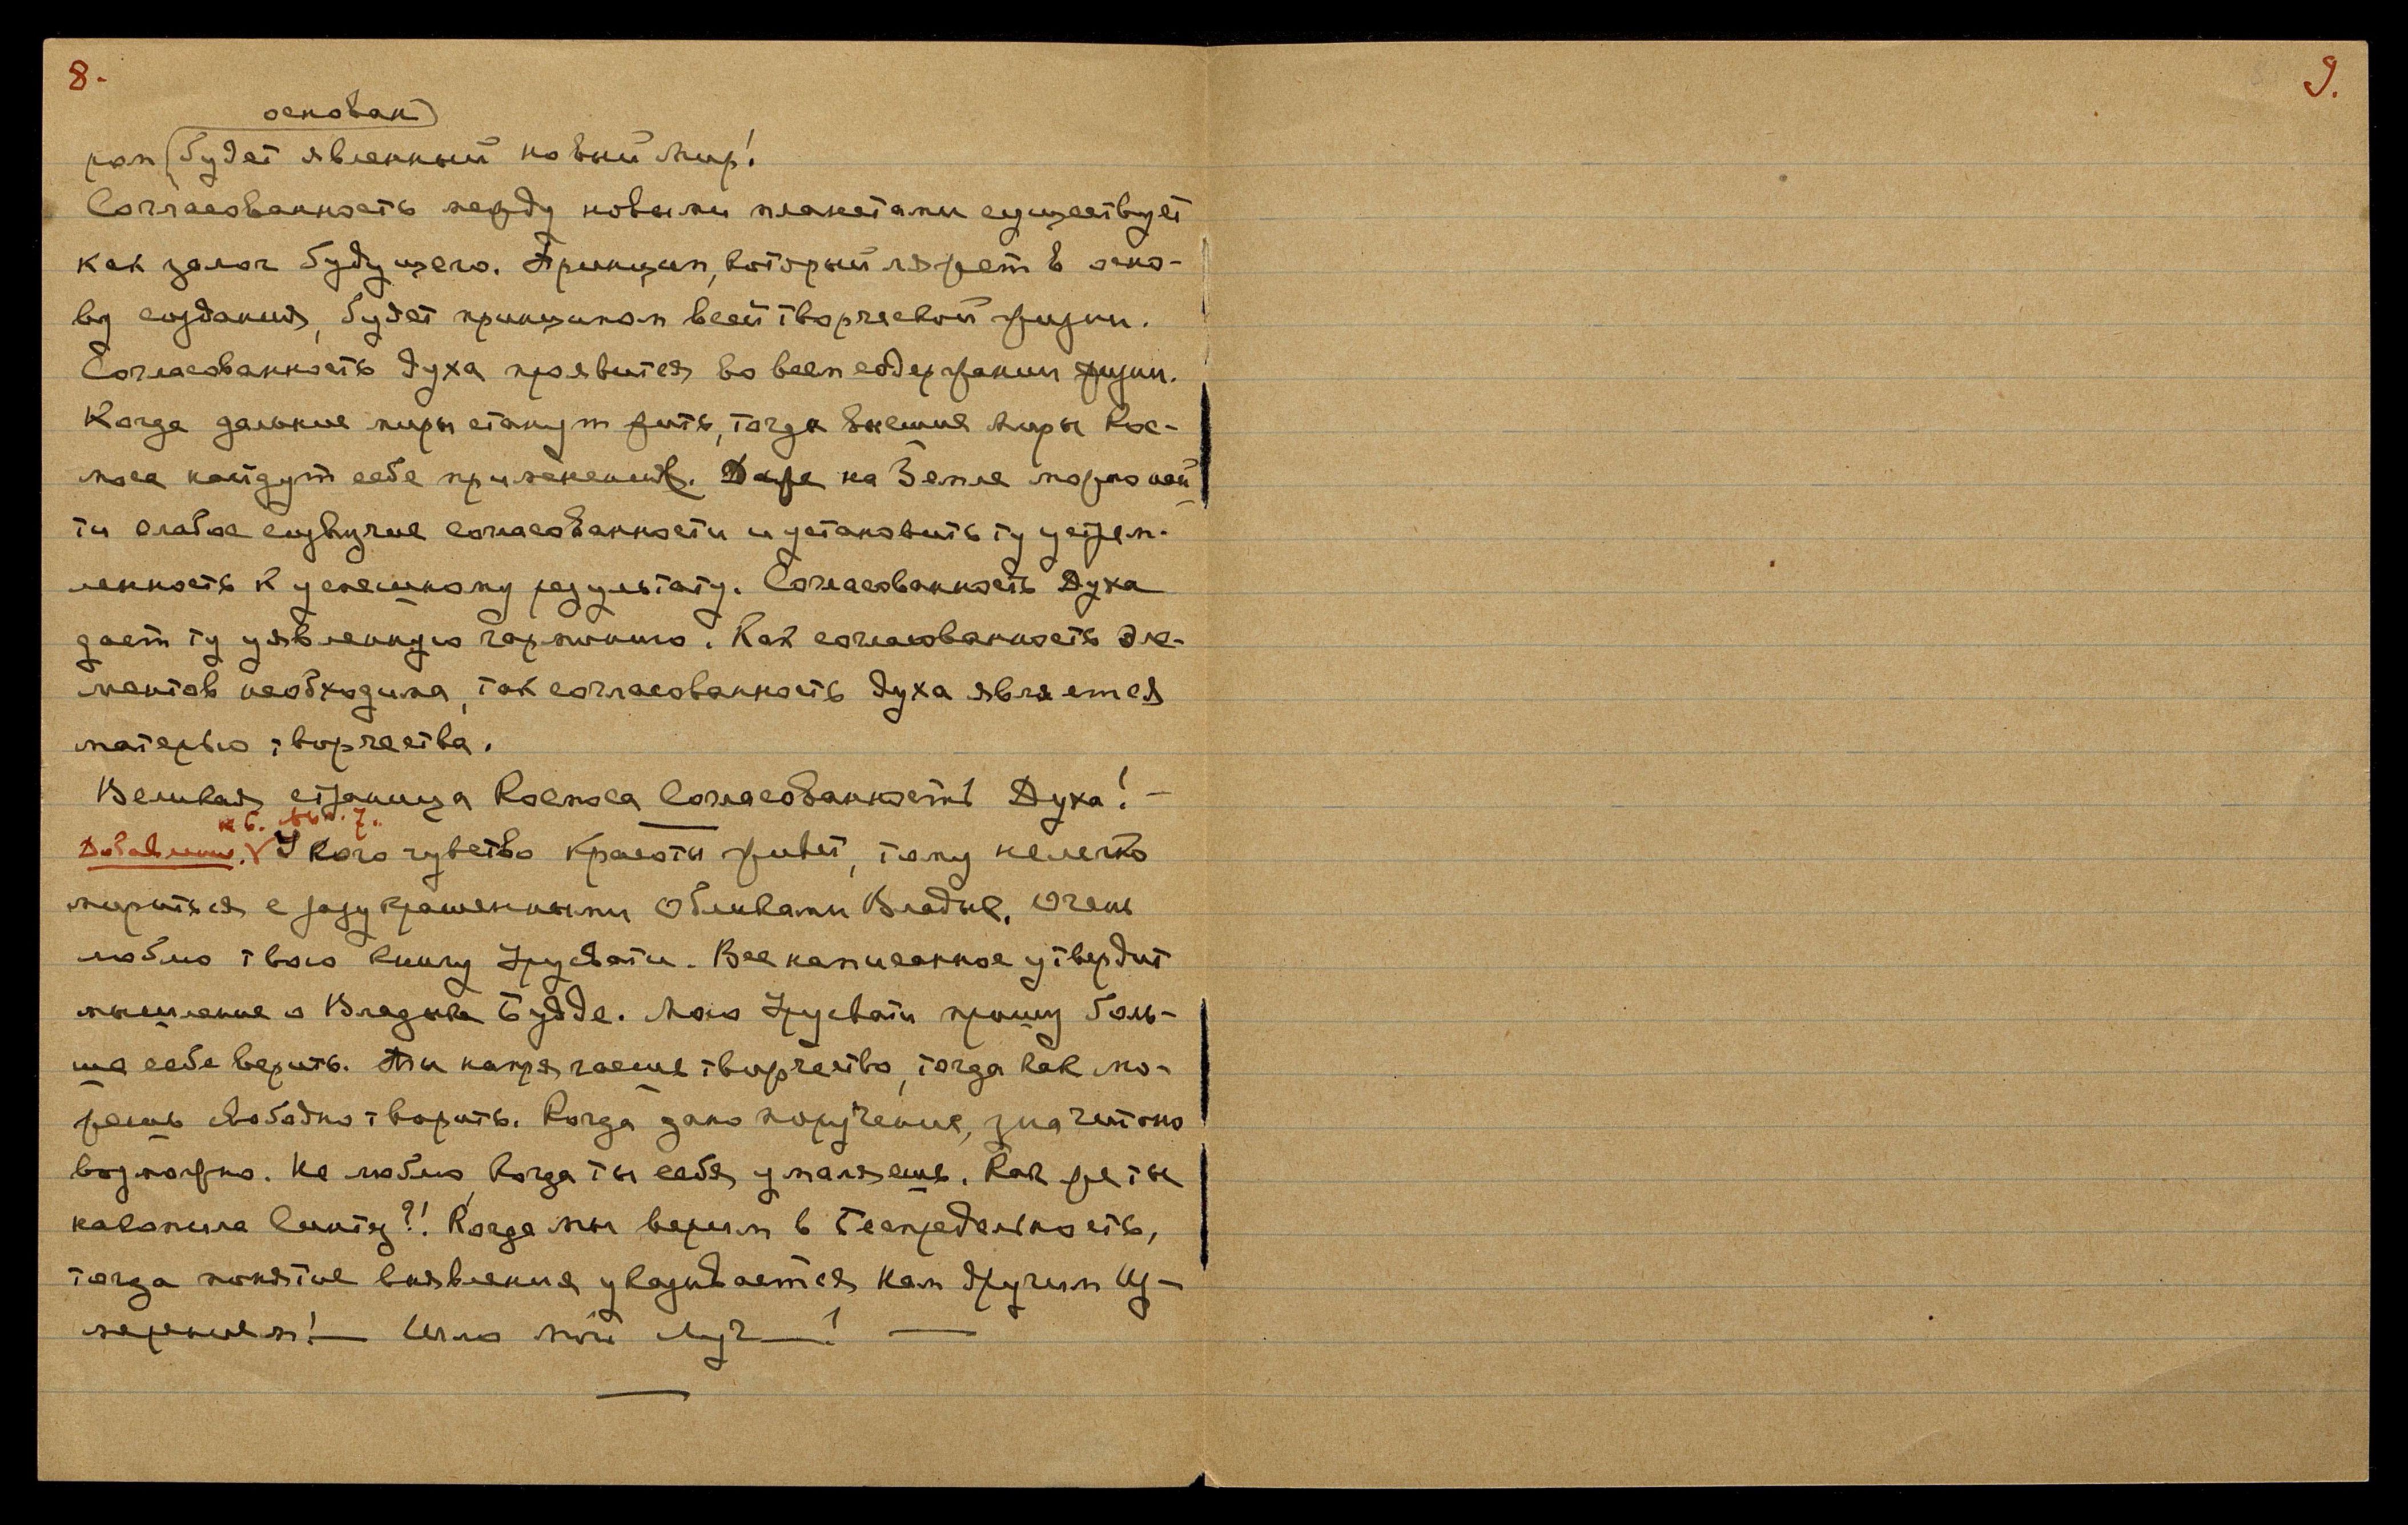 8.
9.
основан
ром будет явленный новый Мир!
Согласованность между новыми планетами существует
как залог будущего. Принцип, который ляжет в осно-
ву создания, будет принципом всей творческой жизни.
Согласованность духа проявится во всем содержании жизни.
Когда дальние миры станут жить, тогда высшие Миры Кос-
моса найдут себе применение. Даже на Земле можно най
ти слабое созвучие согласованности и установить ту устрем-
ленность к успешному результату. Согласованность Духа
дает ту уявленную гармонию. Как согласованность эле-
ментов необходима, так согласованность духа является
матерью творчества.
Великая страница Космоса Согласованность Духа! —
к б. 7.
Добавление. У кого чувство красоты живет, тому нелегко
мириться с разукрашенными Обликами Владык. Очень
люблю твою книгу Урусвати. Все написанное утвердит
мышление о Владыке Будде. Мою Урусвати прошу боль-
ше себе верить. Ты напрягаешь творчество, тогда как мо-
жешь свободно творить. Когда дано поручение, значит оно
возможно. Не люблю, когда ты себя умаляешь. Как же ты
накопила синтез?! Когда мы верим в Беспредельность,
тогда понятие вияявления указывается нам другим Из-
мерением! — Шлю мой Луч —! —